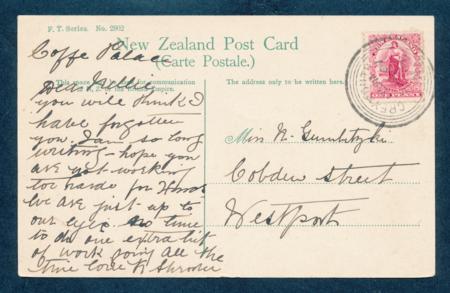 F. T. Series. No. 2902
New Zealand Post Card
(Carte Postale.)
This space may be used for communication
The address only to be written here.
Coffe Palace
Dear Nellie
you will think I
have forgotten
you. I am so long
writing - hope you
are not working
too hard for
we are just up to
our eyes no time
to do one extra bit
of work going all the
time love to
Miss N.
Cobden Street
Westport